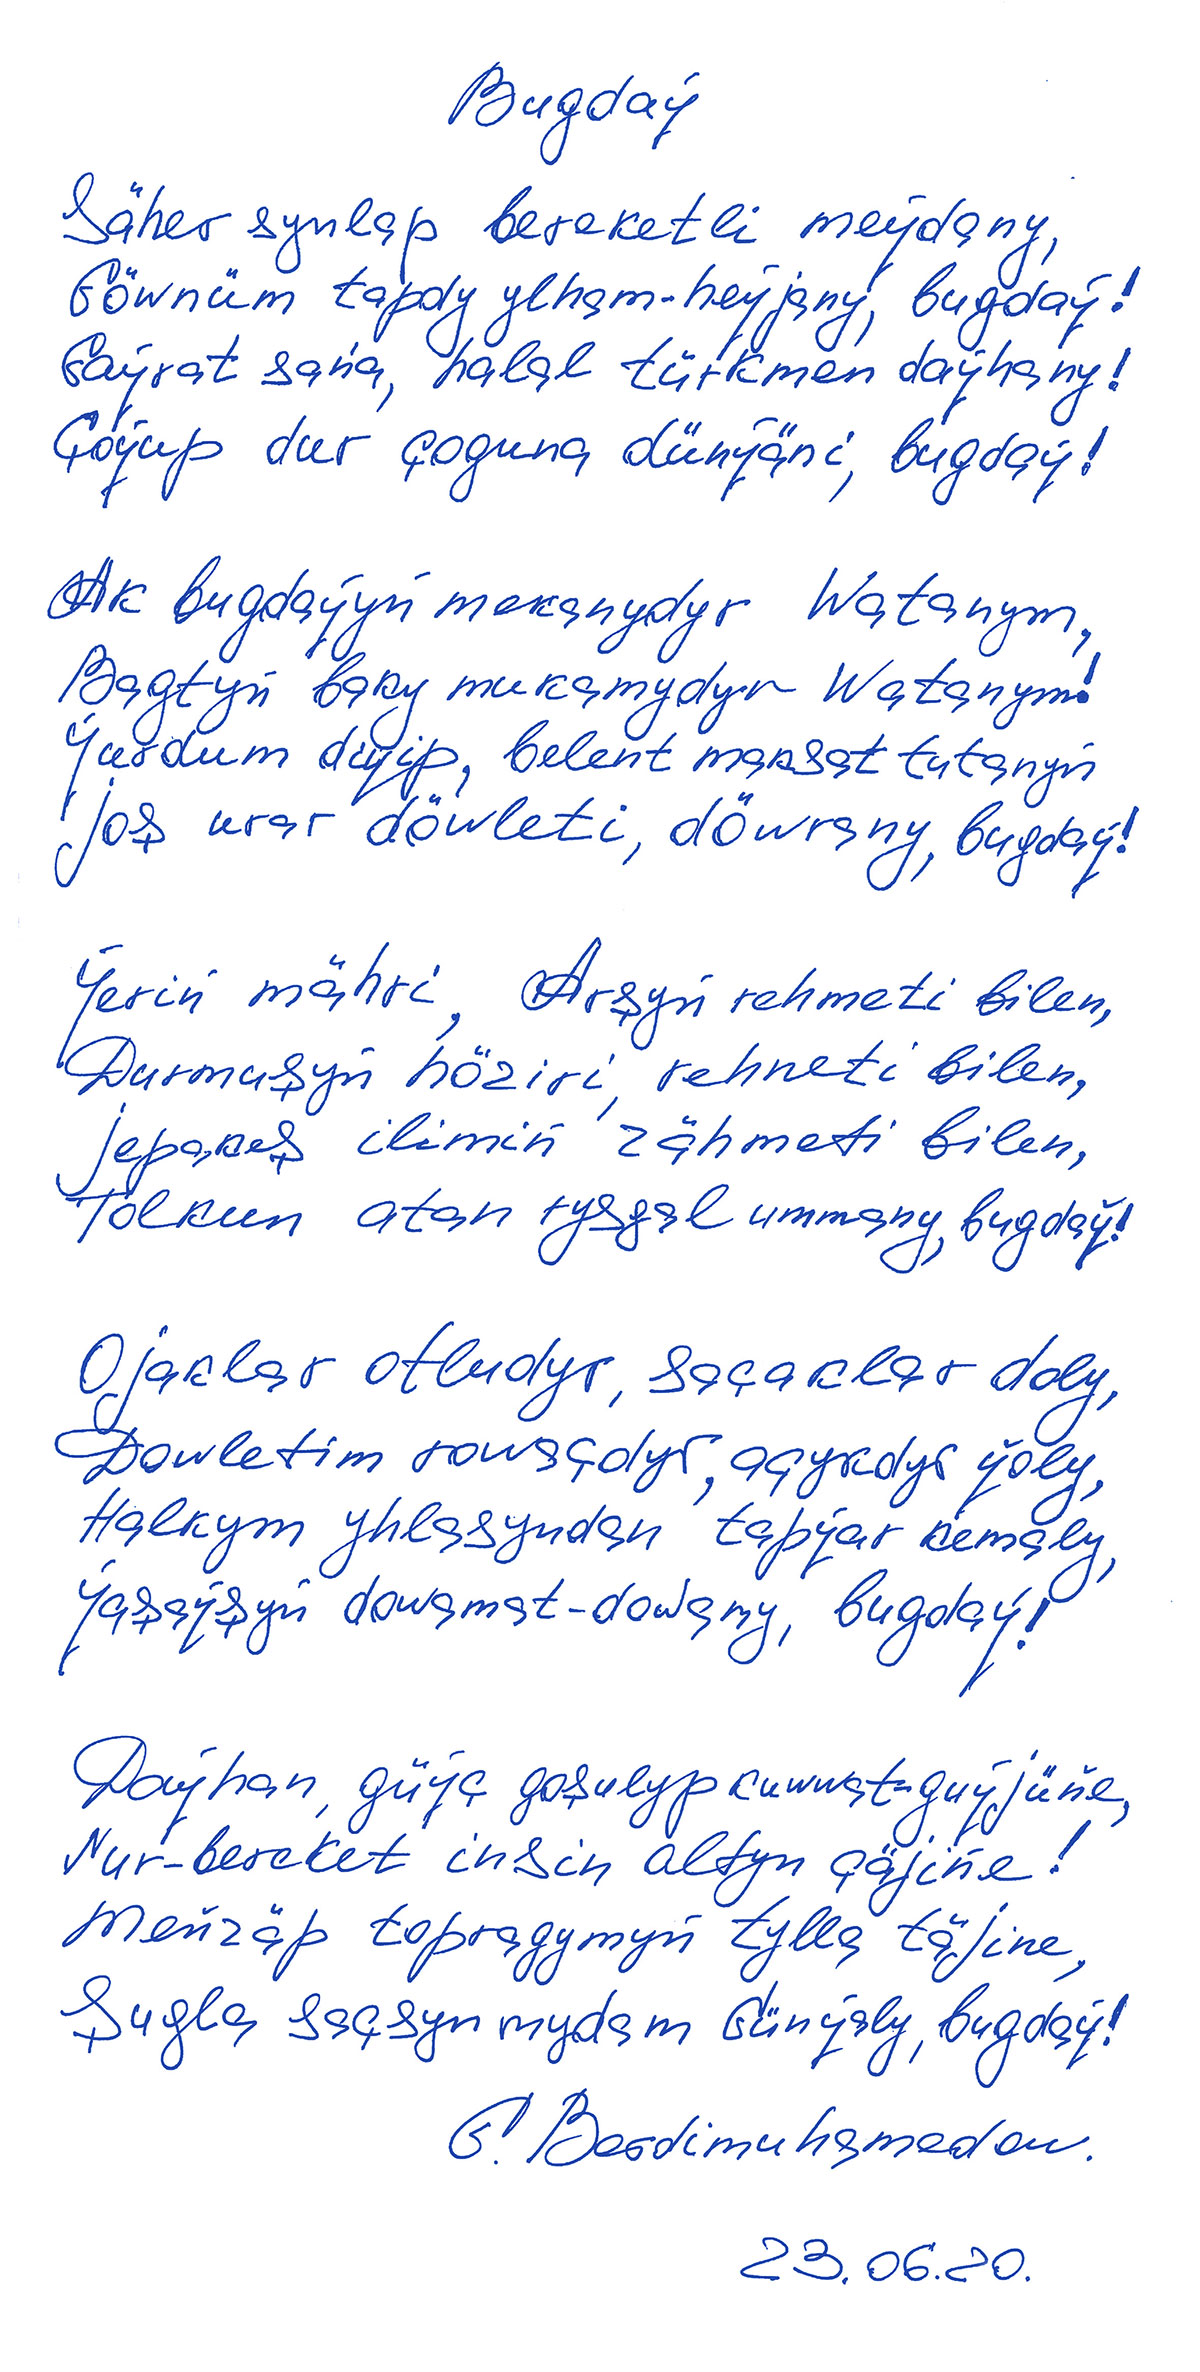 Bugdaý
Säher synlap bereketli meýdany,
Göwnüm tapdy ylham-heýjany, bugdaý!
Gaýrat saňa, halal türkmen daýhany!
Çoýup dur çoguna dünýäni, bugdaý!
Ak bugdaýyň mekanydyr Watanym,
Bagtyň baky mukamydyr Watanym!
Ýurdum diýip, belent maksat tutanyň
Joş urar döwleti, döwrany, bugdaý!
Ýeriň mähri, Arşyň rehmeti bilen,
Durmuşyň höziri, rehneti bilen,
Jepakeş ilimiň zähmeti bilen,
Tolkun atan rysgal ummany, bugdaý!
Ojaklar otludyr, saçaklar doly,
Döwletim rowaçdyr, açykdyr ýoly,
Halkym yhlasyndan tapýar kemaly,
Ýaşaýşyň dowamat-dowamy, bugdaý!
Daýhan, güýç goşulyp kuwwat-güýjüňe,
Nur-bereket insin altyn çäjiňe!
Meňzäp topragymyň tylla täjine,
Şugla saçsyn mydam Günýaly, bugdaý!
G. Berdimuhamedow.
23.06.20.